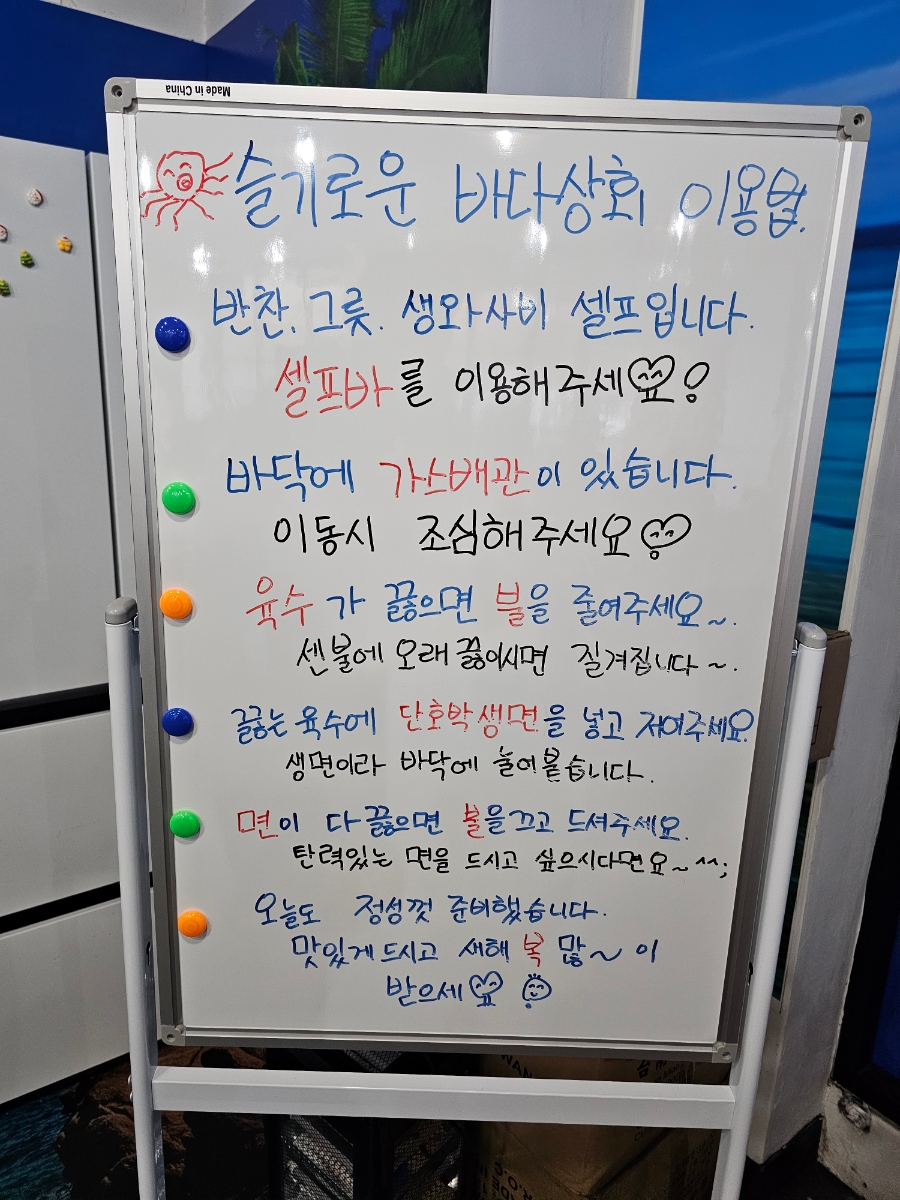 Made in China
슬기로운 바다상회 이용법.
반찬. 그릇. 생와사비 셀프입니다.
셀프바를 이용해주세요!
바닥에 가스배관이 있습니다.
이동시 조심해주세요
육수가 끓으면 불을 줄여주세요~.
센불에 오래 끓이시면 질겨집니다~.
끓는 육수에 단호박생면을 넣고 저어주세요.
생면이라 바닥에 눌어붙습니다.
면이 다 끓으면 불을끄고 드셔주세요.
탄력있는 면을 드시고 싶으시다면요~^^;
오늘도 정성껏 준비했습니다.
맛있게드시고 새해 복 많~이
받으세요